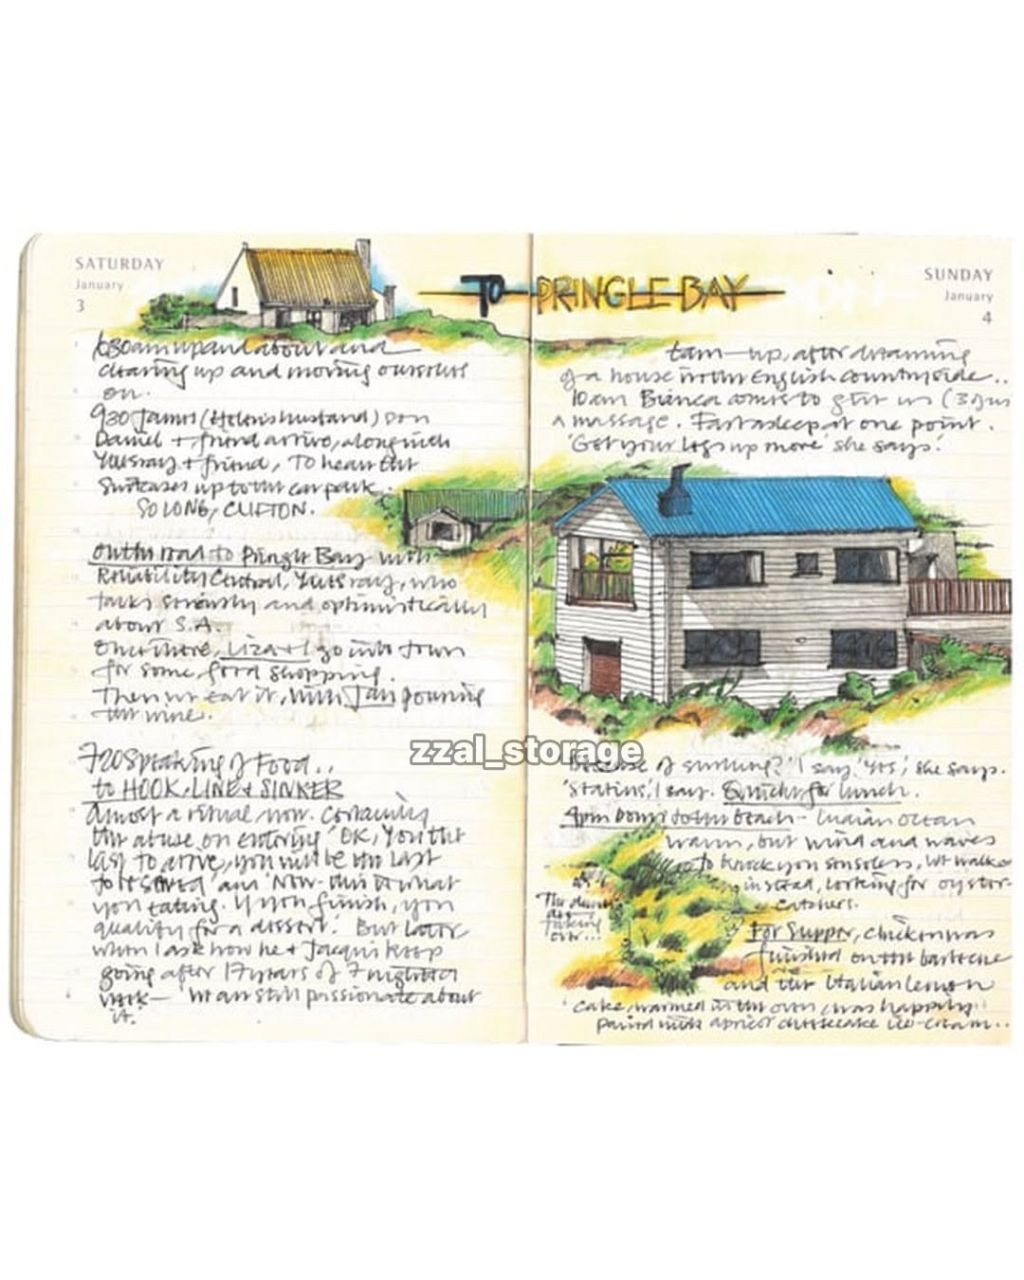 SATURDAY
January
3
TO PRINGLE BAY
SUNDAY
January
4
630am up and about and
clearing up and moving ourselves
on.
930 James (Helen's husband) son
Daniel + friend arrive, along with
+ friend, To hear the
Suitcases up to the car park.
SO LONG, CLIFTON.
On the road to Pringle Bay with
Reliability Central, who
talks seriously and optimistically
about S.A.
Once there, Liza + I go into town
for some food shopping.
Then we eat it, with Jan pouring
the wine.
720 Speaking of Food..
to HOOK, LINE + SINKER
Almost a ritual now.
the abuse on entering 'OK, You the
last to arrive, you will be the last
to be served' and 'Now - this is what
you eating. If you finish, you
qualify for a dessert'. But later
when I ask how he + Jacqui keep
going after 17 years of 7 nights a
week — 'We are still passionate about
it.'
6am — up, after dreaming
of a house in the English countryside..
10am Bianca comes to give us (3 of us)
a massage. Fast asleep at one point.
'Get your legs up more' she says.
Because of surfing?' I say. 'Yes', she says.
'Statins', I say. Quiche for lunch.
4pm Down to the beach - Indian Ocean
warm, but wind and waves
to knock you senseless. We walk
instead, looking for oyster-
catchers.
The dunes
are
taking
over...
For Supper, chicken was
finished on the barbecue
and the Italian lemon
cake, warmed in the oven, was happily
paired with apricot cheesecake ice-cream..
zzal_storage